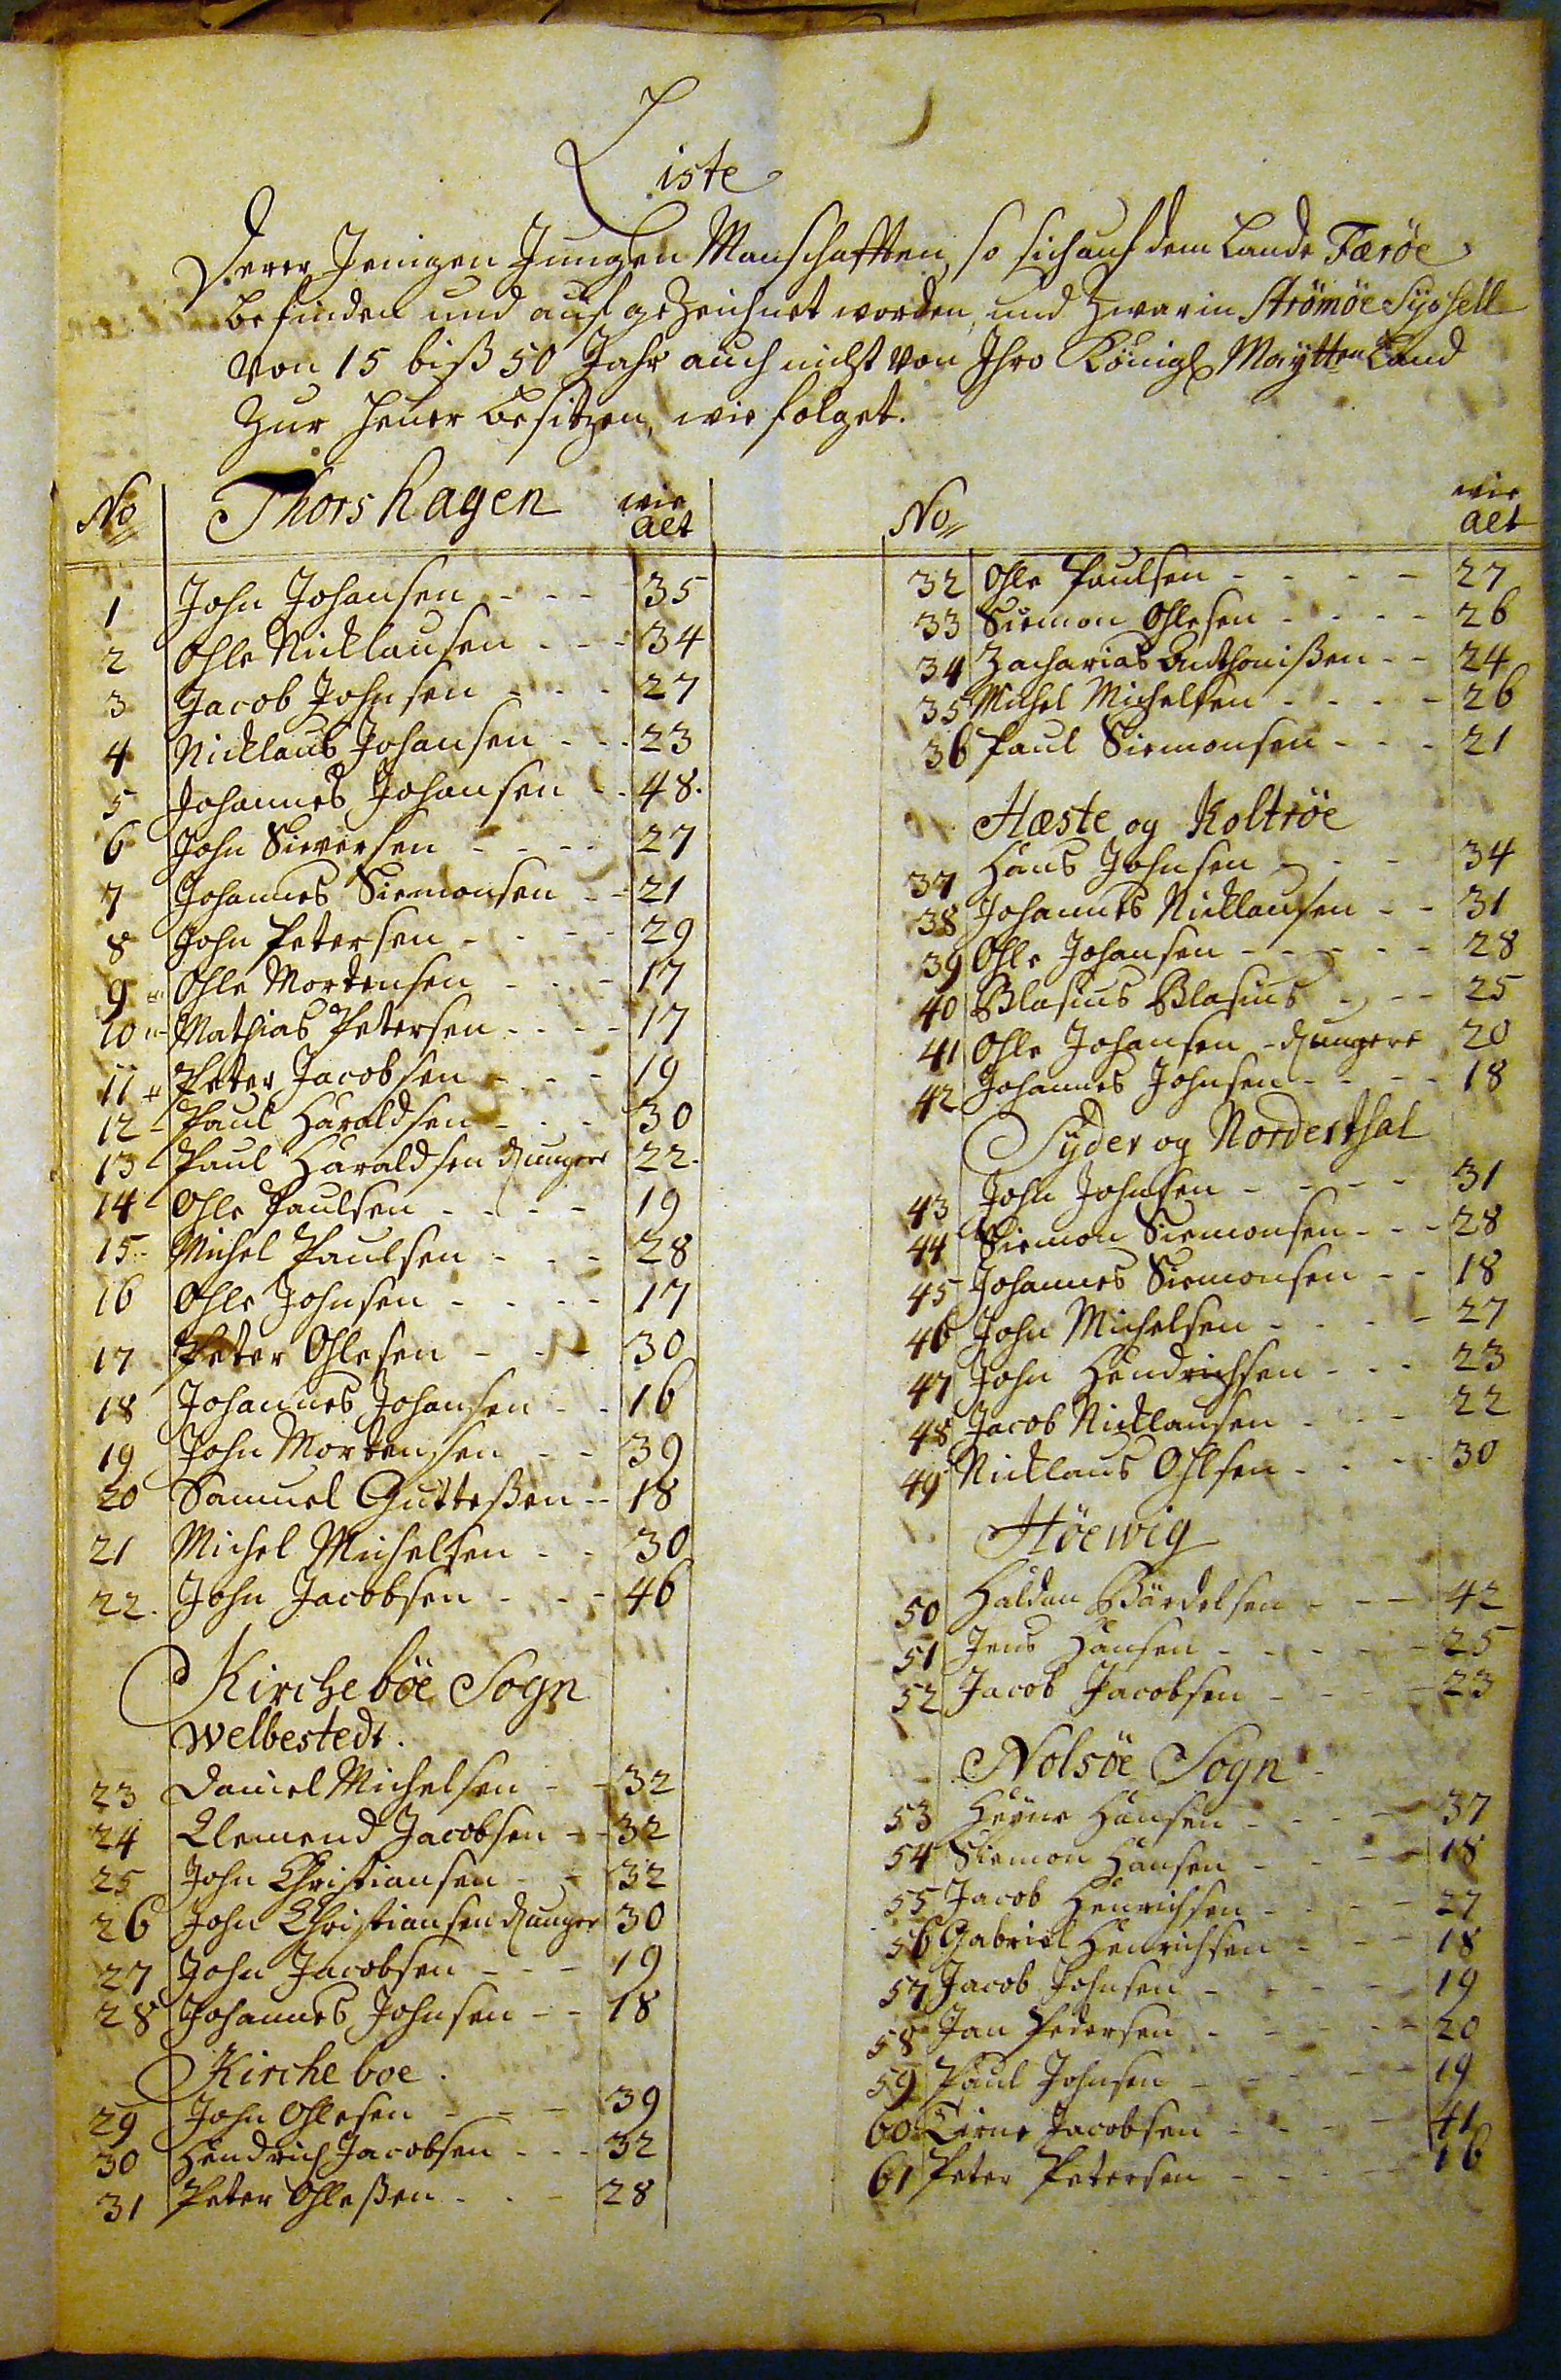 Liste
Derer Jenigen Jungen Manschafften, so sich auf dem Lande Færöe
befinden und aufgezeichnet worden, und Zwar in Strömöe Syssell
von 15 biß 50 Jahr auch nicht von Ihro Königl Maytten Land
zur heuer besitzen, wie folget.
No Thorshagen wie alt
1 John Johansen - - - 35
2 Ohle Nicklausen - - - 34
3 Jacob Johnsen - - - 27
4 Nicklaus Johansen - - - 23
5 Johannes Johansen - - 48.
6 John Sieversen - - - - 27
7 Johannes Siemonsen - - 21
8 John Petersen - - - - 29
9 Ohle Mortensen - - - 17
10 Mathias Petersen - - - - 17
11 + Peter Jacobsen - - - - 19
12 Paul Haraldsen - - - 30
13 Paul Haraldsen Junger 22.
14 Ohle Paulsen - - - - 19
15 Michel Paulsen - - - 28
16 Ohle Johnsen - - - - 17
17 Peter Ohlesen - - - 30
18 Johannes Johansen - - 16
19 John Mortensen - - 39
20 Samuel Guttessen - - 18
21 Michel Michelsen - - 30
22. John Jacobsen - - - 46
Kircheböe Sogn
Welbestedt.
23 Daniel Michelsen - - 32
24 Clemend Jacobsen - - 32
25 John Christiansen - - 32
26 John Christiansen Junger 30
27 John Jacobsen - - - 19
28 Johannes Johnsen - - 18
Kircheboe.
29 John Ohlesen - - - 39
30 Hendrich Jacobsen - - - 32
31 Peter Ohleßen - - - 28
No wie alt
32 Ohle Paulsen - - - - 27
33 Siemon Ohlesen - - - - 26
34 Zacharias Andthonißen - - 24
35 Michel Michelsen - - - - 26
36 Paul Siemonsen - - - 21
Hæste og Koltröe
37 Hans Johnsen - - - 34
38 Johannes Nicklausen - - 31
39 Ohle Johansen - - - - - 28
40 Blasius Blasius - - - 25
41 Ohle Johansen - Jungere 20
42 Johannes Johnsen - - - - 18
Syder og Norderthal
43 John Johnsen - - - - 31
44 Siemon Siemonsen - - - 28
45 Johannes Siemonsen - - 18
46 John Michelsen - - - - 27
47 John Hendrichsen - - - 23
48 Jacob Nicklausen - - - 22
49 Nicklaus Ohlsen - - - - 30
Höewig
50 Haldan Bärdelsen - - - 42
51 Jens Hansen - - - - - 25
52 Jacob Jacobsen - - - - 23
Nolsöe Sogn
53 Heyne Hansen - - - - 37
54 Siemon Hansen - - - - 18
55 Jacob Henrichsen - - - - 27
56 Gabriel Henrichsen - - - 18
57 Jacob Johnsen - - - - 19
58 Jan Pedersen - - - - - 20
59 Paul Johnsen - - - - - 19
60 Jacobsen - - - - 41
61 Peter Petersen - - - - 16